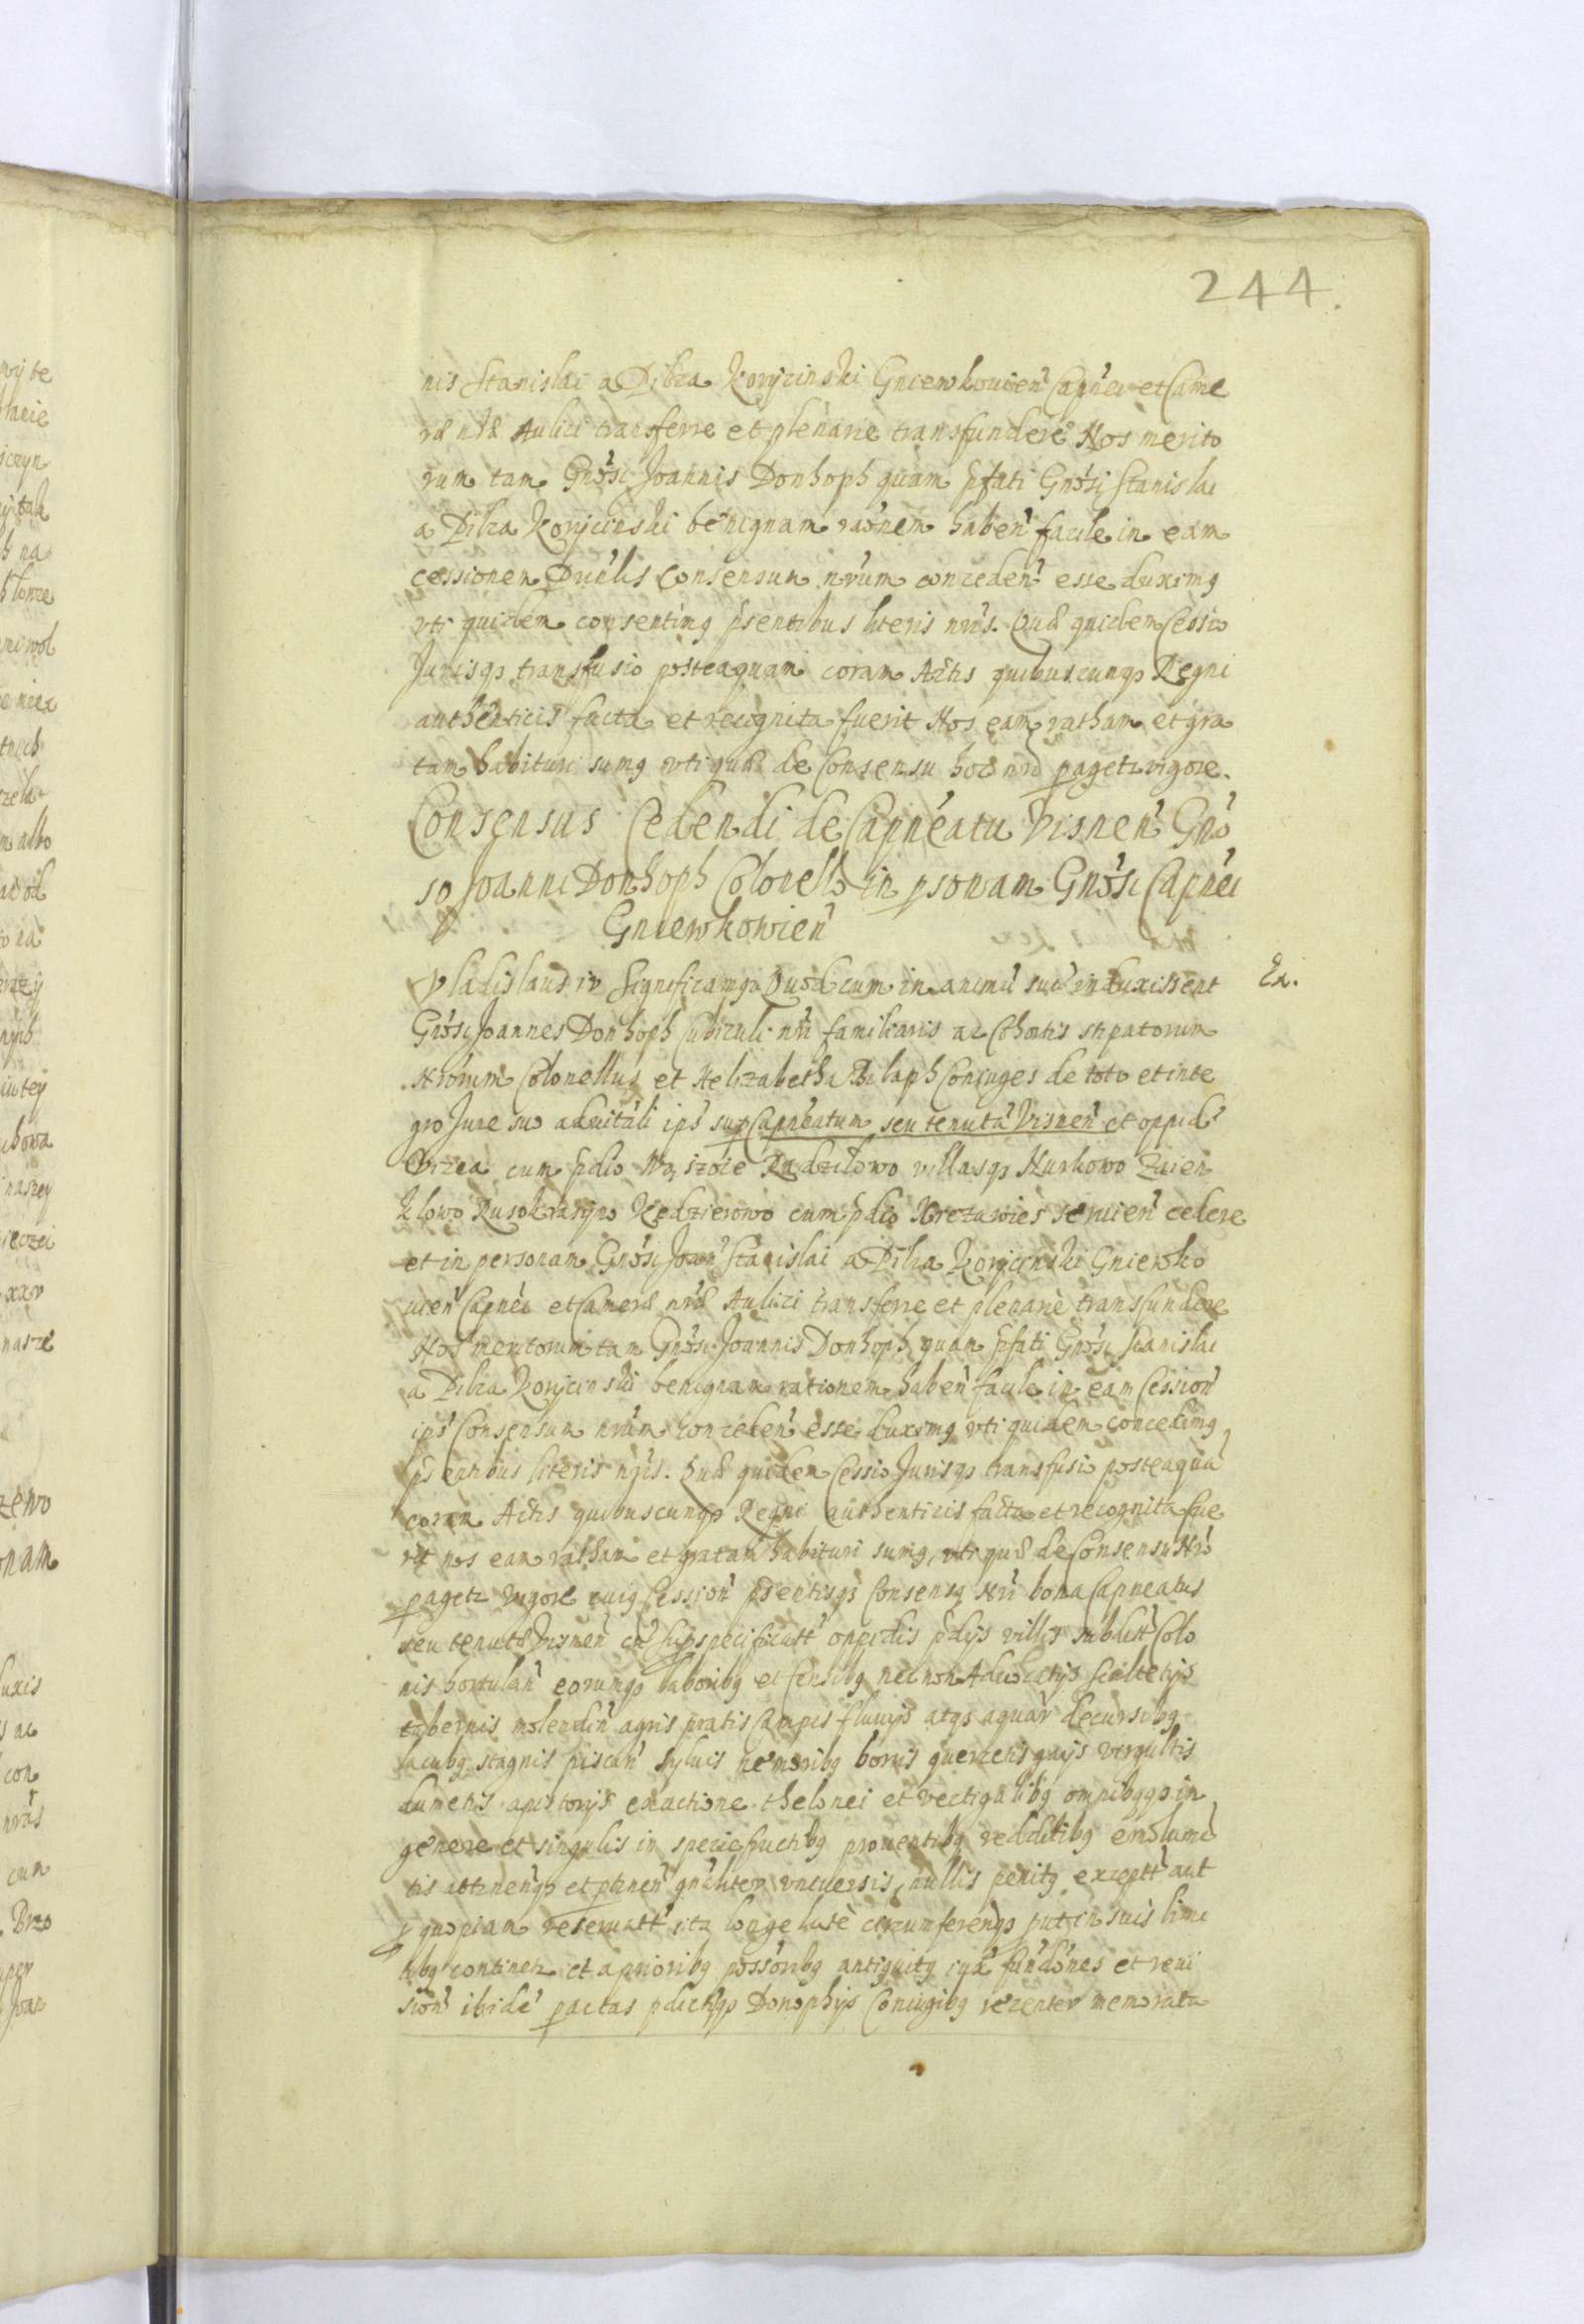 244.
nis Stanislai a Pilca Koryczinski Gniewkouien Capnei et Came
ræ nræ Aulici transferre et plenarie transfundere Nos merito
rum tam Gnosi Joannis Donhoph quam pfati Gnosi Stanislai
a Pilca Korycinski benignam raonem haben facile in eam
cessionem consensum nrum conceden esse duximg
vti quidem consentimg psentibus literis nris. Quæ quidem Cessio
Jurisqs transfusio posteaquam coram Actis quibuscunqs Regni
authenticis facta et recognita fuerit Nos eam ratham et gra
tam habituri sumg vti quæ de Consensu hoc nro pagetr vigore.
Consensus Cedendi de Capneatu Visnen Gno
so Joanni Donhoph Colonello in psonam Gnosi Capnei
Gniewkowien
Ex.
Vladislaus iv Significamqs Quod cum in animu suu induxissent
Gnosi Joannes Donhoph Cubiculi nri familiaris ac Cohortis stipatorum
Nrorum Colonellus et Helizabetha Conjuges de toto et inte
gro Jure suo aduitali ips sup Capneatum seu tenuta Visnen et oppid
cum pdio Radzilowo villasqs Kurkowo
klowo Kedzierowo cum pdio seruien cedere
et in personam Gnosi Joan Stanislai a Pilca Korycinski Gniewko
uien Capnei et Cameræ nræ Aulici transferre et plenarie transfundere
Nos meritorum tam Gnosi Joannis Donhoph quam pfati Gnosi Stanislai
a Pilca Korycinski benignam rationem haben facile in eam Cession
ips Consensum nrum conceden esse duximg vti quidem concedimg
psentibus literis nris. Quæ quidem Cessio Jurisqs transfusio posteaqua
coram Actis quibuscunqs Regni authenticis facta et recognita fue
rit nos eam ratham et gratam habituri sumg, vti quæ de Consensu Nro
pagetr vigore cuig Cession psentisqs Consensg Nri bona Capneatus
seu tenutæ Visnen cu supspecificatt oppidis pdijs villis subditt Colo
nis hortulan eorumqs laboribg et censibg necnon Aduocatijs scultetijs
tabernis molendin agris pratis Campis fluuijs atqs aquar decursibg
lacubg stagnis piscin syluis nemoribg borris quercetis gaijs virgultis
dumetis apistorijs exactione thelonei et vectigalibg omnibgqs in
genere et singulis in specie fructibg prouentibg redditibg emolume
tis attinenqs et ptinen gnaliter vniuersis, nullis penitg exceptt aut
p quopiam reseruatt ita longe late circumferenqs put in suis limi
tibg continetr et a prioribg possoribg antiquitg iuxa fundones et reui
sion ibide pactas pdictisqs Donophijs Coniugibg recenter memorata